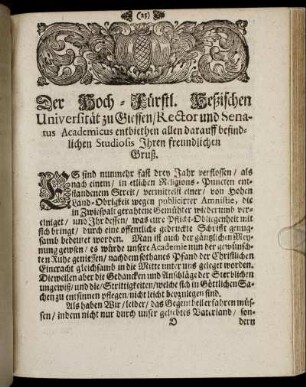 (25)
Der Hoch-Fürstl. Heßischen
Universität zu Giessen/Rector und Sena-
tus Academicus entbiethen allen darauff befind-
lichen Studiosis Ihren freundlichen
Gruß.
ES sind nunmehr fast drey Jahr verflossen/ als
nach einem/ in etlichen Religions-Puncten ent-
standenem Streit/ vermittelst einer/ von Hoher
Land-Obrigkeit wegen publicirter Amnistie, die
in Zwiespalt gerathene Gemüther wiederumb ver-
einiget/ und Ihr dessen/ was eure Pflicht-Obliegenheit mit
sich bringt/ durch eine offentliche gedruckte Schrifft genug-
samb bedeutet worden. Man ist auch der gäntzlichen Mey-
nung gewesen/ es würde unsere Academie nun der gewünsch-
ten Ruhe geniessen/ nachdem sothanes Pfand der Christlichen
Eintracht gleichsamb in die Mitte unter uns geleget worden.
Dieweilen aber die Gedancken und Anschläge der Sterblichen
ungewiß/ und die/ Strittigkeiten/ welche sich in Göttlichen Sa-
chen zu entspinnen pflegen/ nicht leicht beyzulegen sind.
Als haben Wir/ leider/ das Gegentheil erfahren müs-
sen/ indem nicht nur durch unser geliebtes Vaterland/ son-
D dern